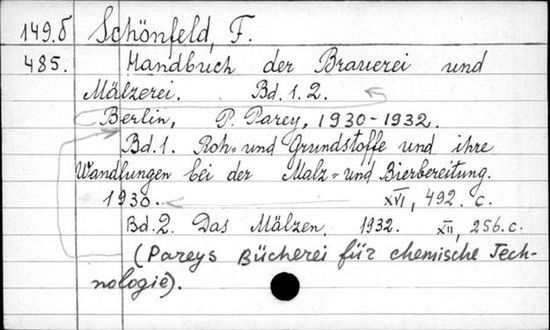 149.б Schönfeld, F.
485. Handbuch der Brauerei und
Mälzerei. Bd. 1. 2.
Berlin, P. Parey, 1930-1932.
Bd. 1. Roh- und Grundstoffe und ihre
Wandlungen bei der Malz- und Bierbereitung.
1930. XVI, 492. c.
Bd. 2. Das Mälzen. 1932. XII, 256. c.
(Pareys Bücherei für chemische Tech-
nologie).